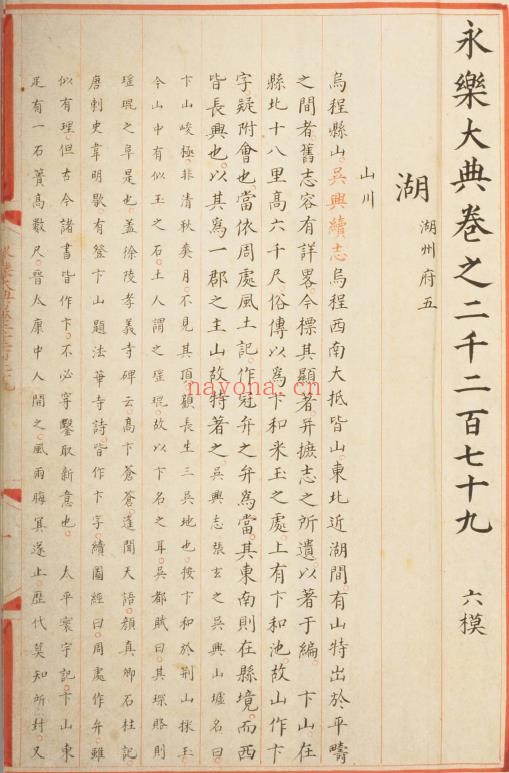 永樂大典卷之二千二百七十九 六模
湖 湖州府五
山川
烏程縣山吳興續志烏程西南大抵皆山東北近湖間有山特出於平疇
之間者舊志容有詳畧今標其顯著并摭志之所遺以著于編 卞山在
縣北十八里高六千尺俗傳以為卞和采玉之處上有卞和池故山作卞
字疑附會也當依周處風土記作冠弁之弁為當其東南則在縣境而西
皆長興也以其為一郡之主山故特著之吳興志張玄之吳興山墟名曰
卞山峻極非清秋爽月不見其頂顧長生三吳地也按卞和於荆山採玉
今山中有似玉之石土人謂之瑶琨故以卞名之耳吳都賦曰其琛賂則
瑶琨之阜是也蓋徐陵孝義寺碑云高卞蒼蒼遥聞天語顔真卿石柱記
唐刺史韋明歇有登卞山題法華寺詩皆作卞字續圖經曰周處作弁雖
似有理但古今諸書皆作卞不必穿鑿取新意也 太平寰宇記卞山東
足有一石簣高數尺晉太康中人開之風雨晦冥遂止歷代莫知所封又
nayona.cn